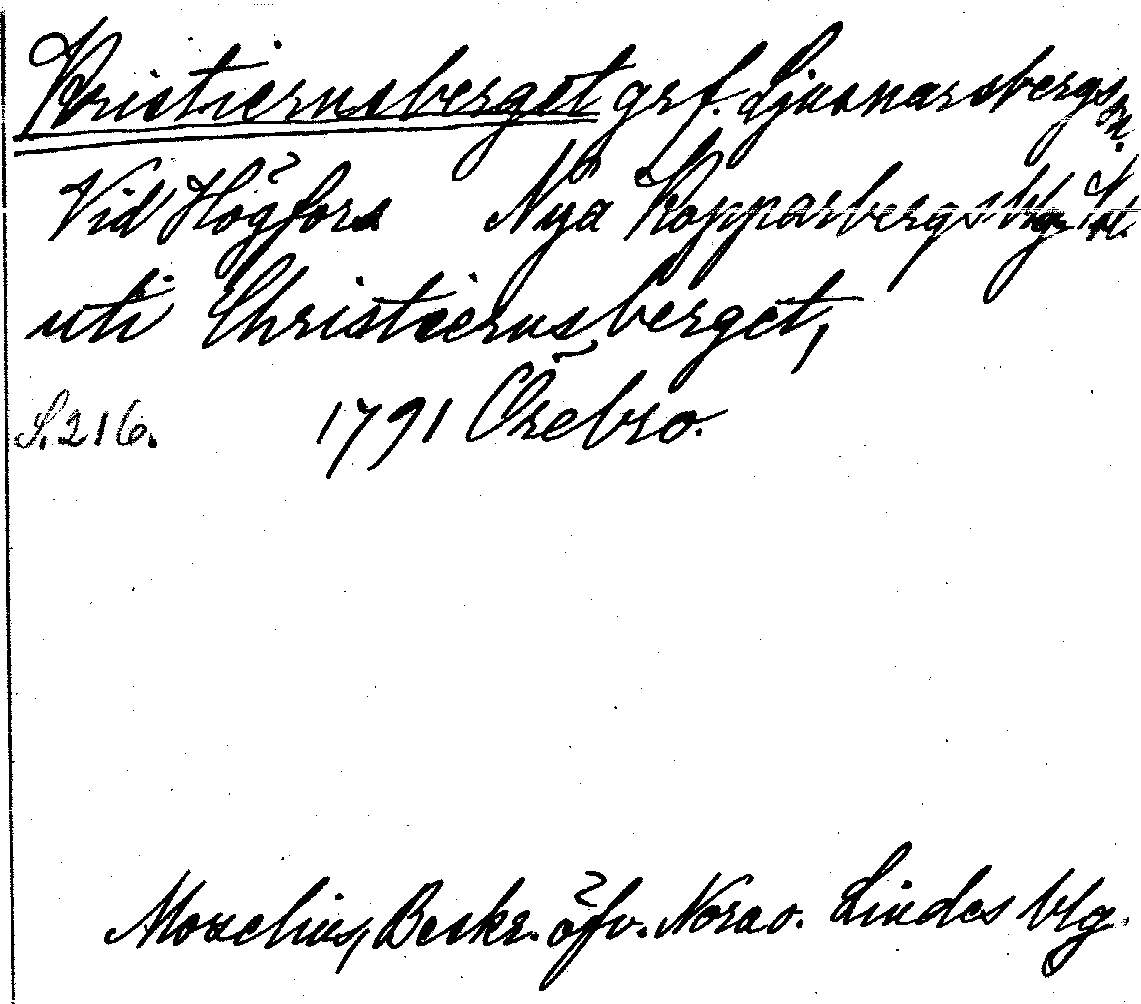 Kristiernsberget grf. Ljusnarsbergs sn.
Vid Högfors Nya Kopparbergs
uti Christiernsberget,
S. 216. 1791 Örebro.
Beskr. öfv. Nora o. Lindes blg.